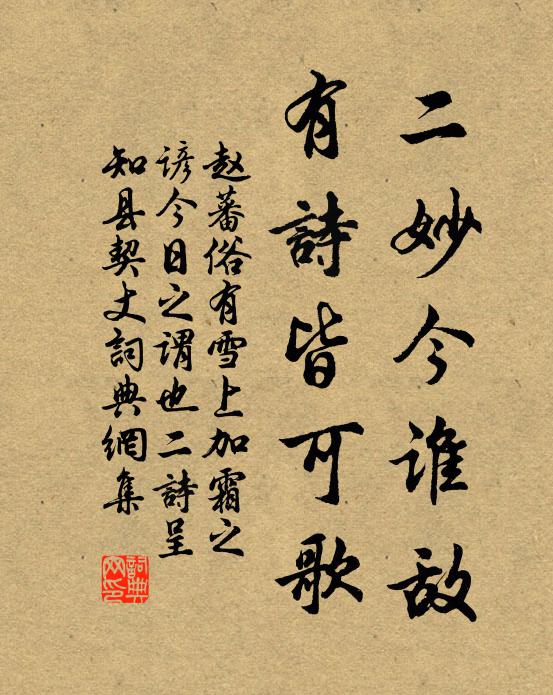 二妙今谁敌
有詩皆可歌
赵蕃俗有雪上加霜之
谚今日之谓也二詩呈
知县契丈詞典網集
詞典網印